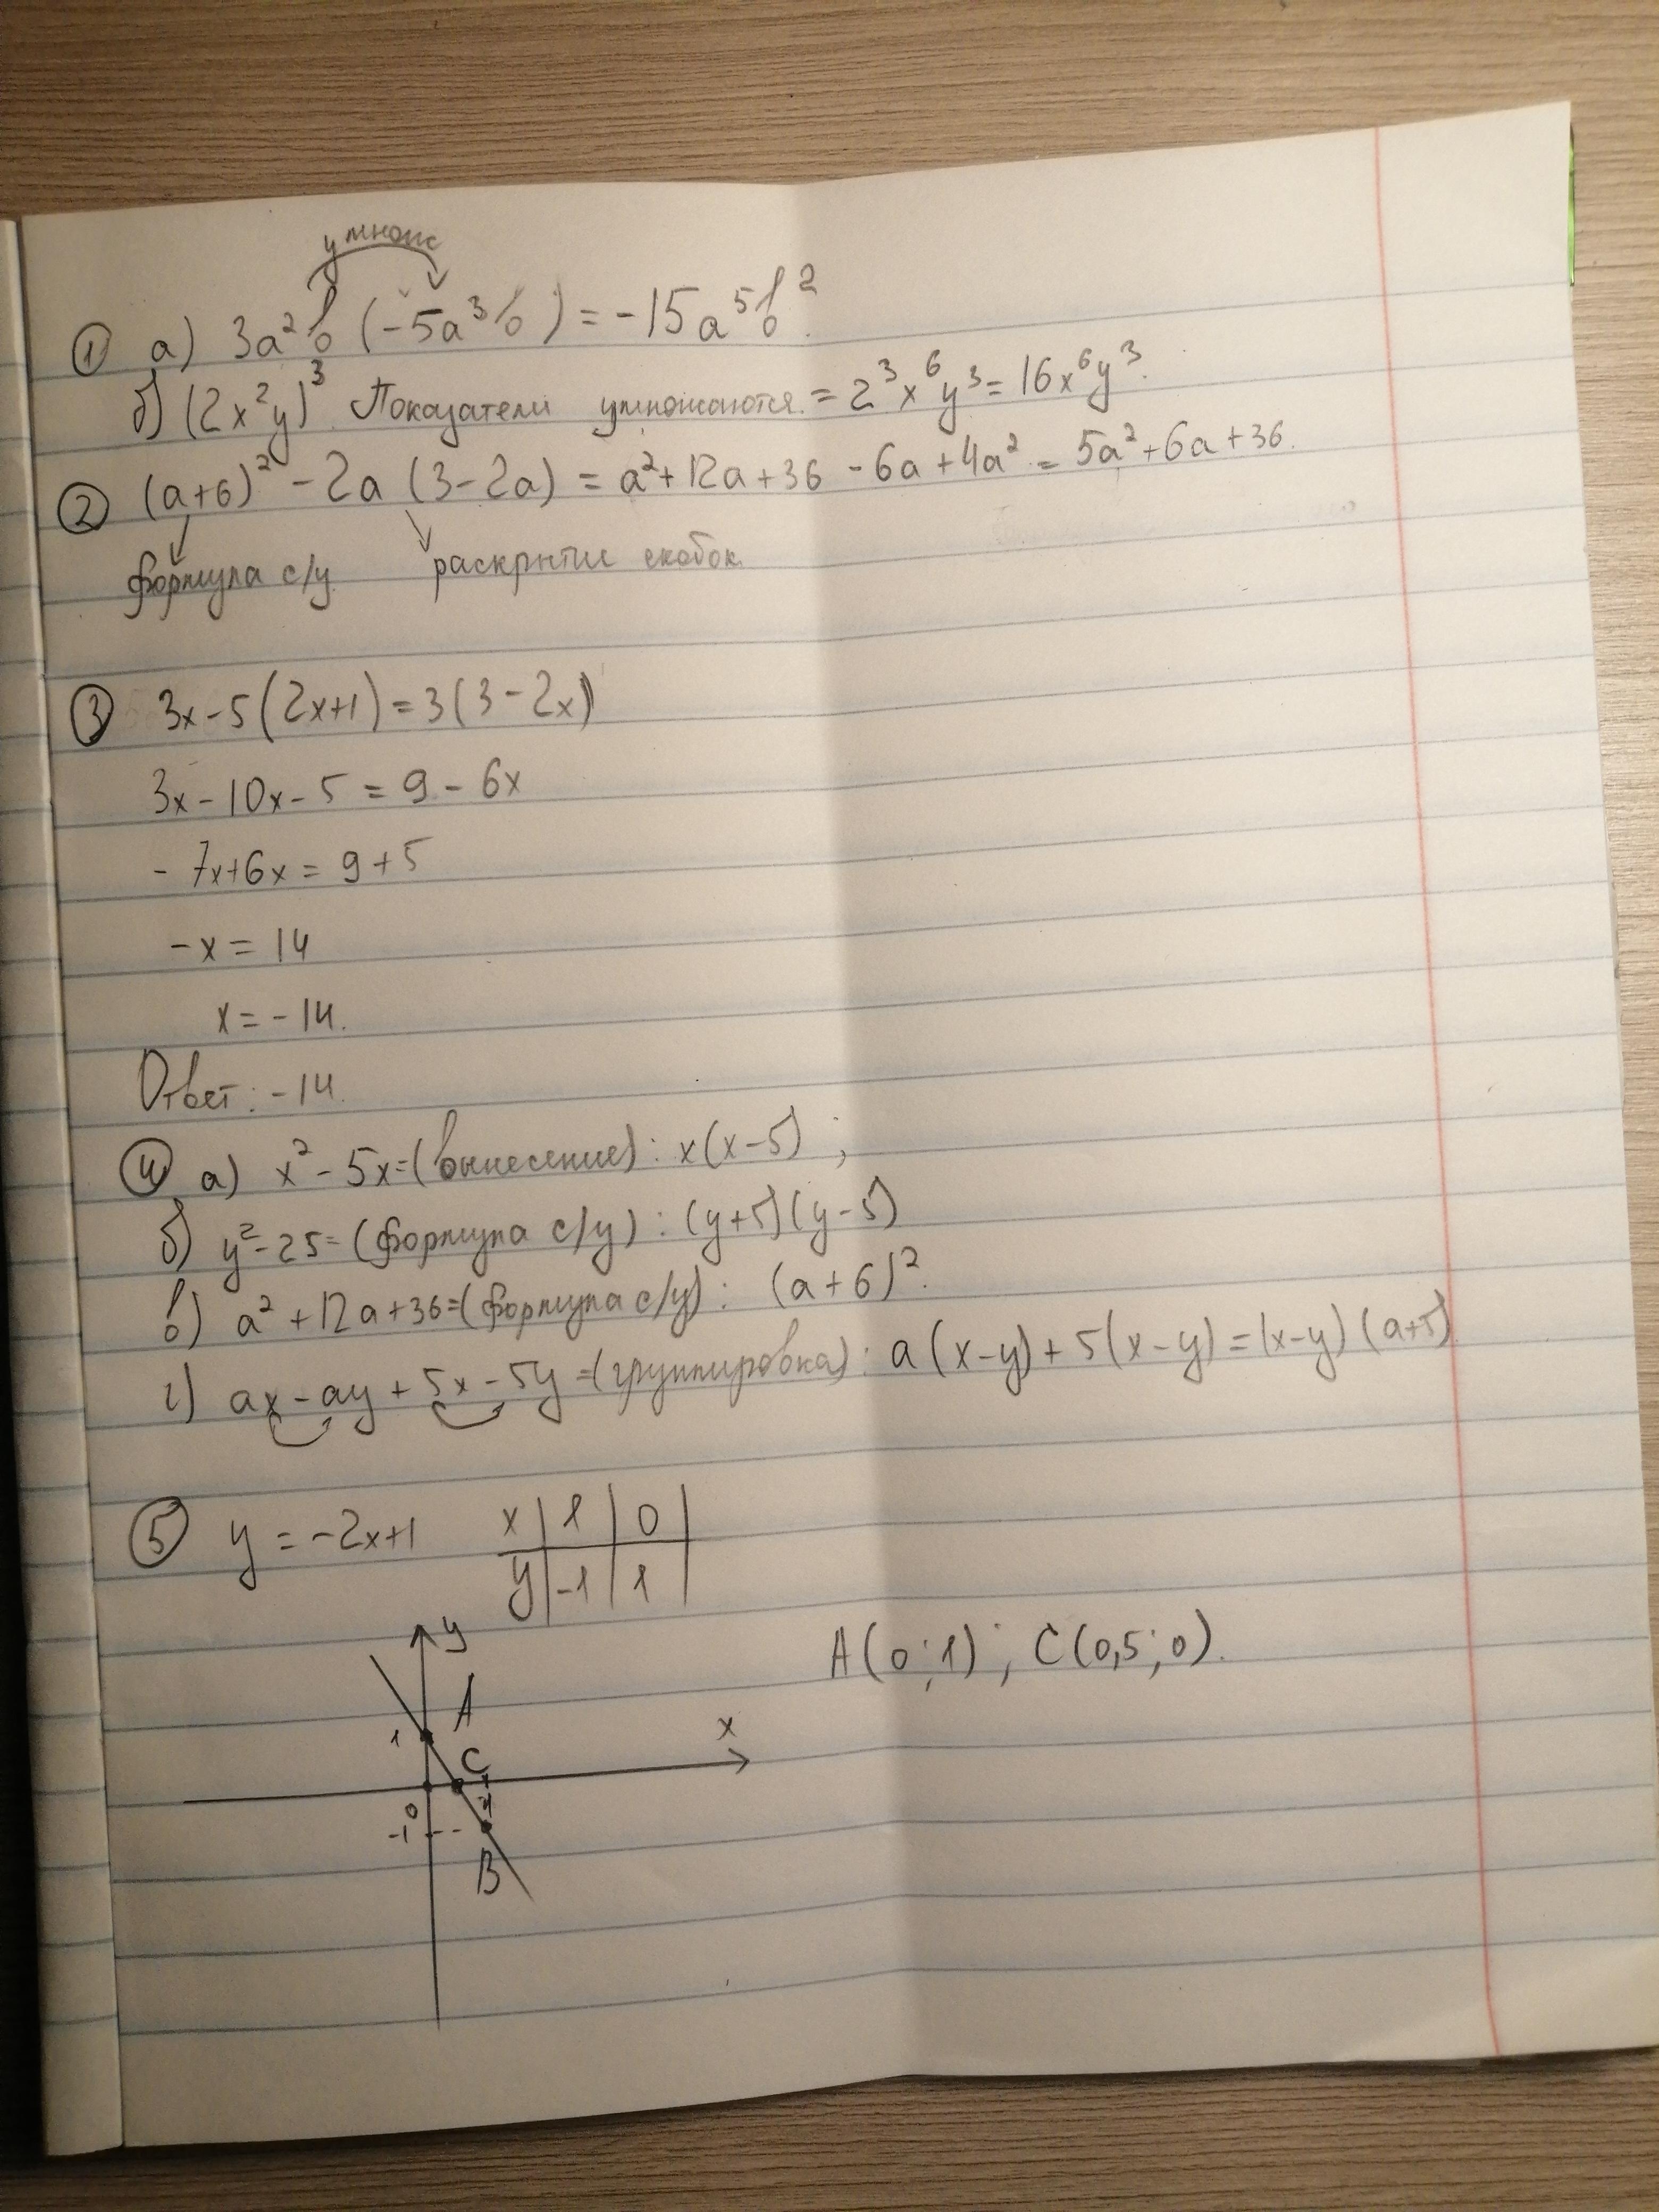 умнож
① а) 3a²b (-5a³b) = -15a⁵b².
б) (2x²y)³. Показатели умножаются. = 2³x⁶y³ = 16x⁶y³.
② (a+6)² - 2a (3-2a) = a²+12a+36 -6a+4a² = 5a²+6a+36.
формула с/у. раскрытие скобок.
③ 3x-5(2x+1)=3(3-2x)
3x-10x-5 = 9-6x
-7x+6x = 9+5
-x = 14
x = -14.
Ответ: -14.
④ а) x²-5x=(вынесение): x(x-5) ;
б) y²-25=(формула с/у): (y+5)(y-5)
в) a²+12a+36=(формула с/у): (a+6)².
г) ax-ay+5x-5y=(группировка): a(x-y)+5(x-y)=(x-y)(a+5)
⑤ y = -2x+1 x | 1 | 0
y | -1 | 1
y
A(0;1) ; C(0,5;0).
A
1
x
C
1
0
-1
B